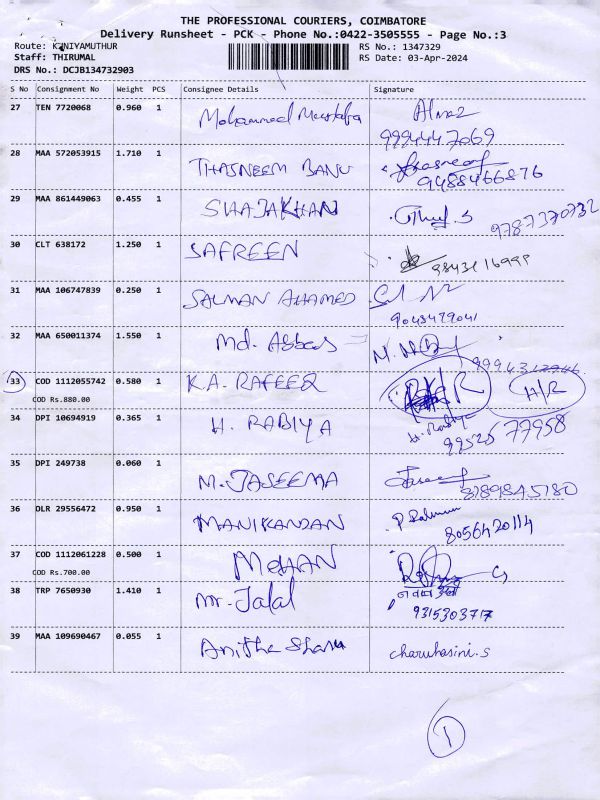 THE PROFESSIONAL COURIERS, COIMBATORE
Delivery Runsheet - PCK - Phone No.:0422-3505555 - Page No.:3
Route: KUNIYAMUTHUR RS No.: 1347329
Staff: THIRUMAL RS Date: 03-Apr-2024
DRS No.: DCJB134732903
S No Consignment No Weight PCS Consignee Details Signature
27 TEN 7720068 0.960 1 Mohammed Mustafa
9994447069
28 MAA 572053915 1.710 1 THASNEEM BANU
9488466876
29 MAA 861449063 0.455 1 SHAJAKHAN
9787370732
30 CLT 638172 1.250 1 SAFREEN
31 MAA 106747839 0.250 1 SALMAN AHAMED
9043479041
32 MAA 650011374 1.550 1 Md. Abbas
33 COD 1112055742 0.580 1 K.A. RAFEEQ H/R
COD Rs.880.00
34 DPI 10694919 0.365 1 H. RABIYA H. Rabiya
9952677958
35 DPI 249738 0.060 1 M. JASEEMA
8189845180
36 DLR 29556472 0.950 1 MANIKANDAN
8056420114
37 COD 1112061228 0.500 1 MOHAN
COD Rs.700.00
38 TRP 7650930 1.410 1 Mr. Jalal
9315303717
39 MAA 109690467 0.055 1 Anitha charuhasini.s
1